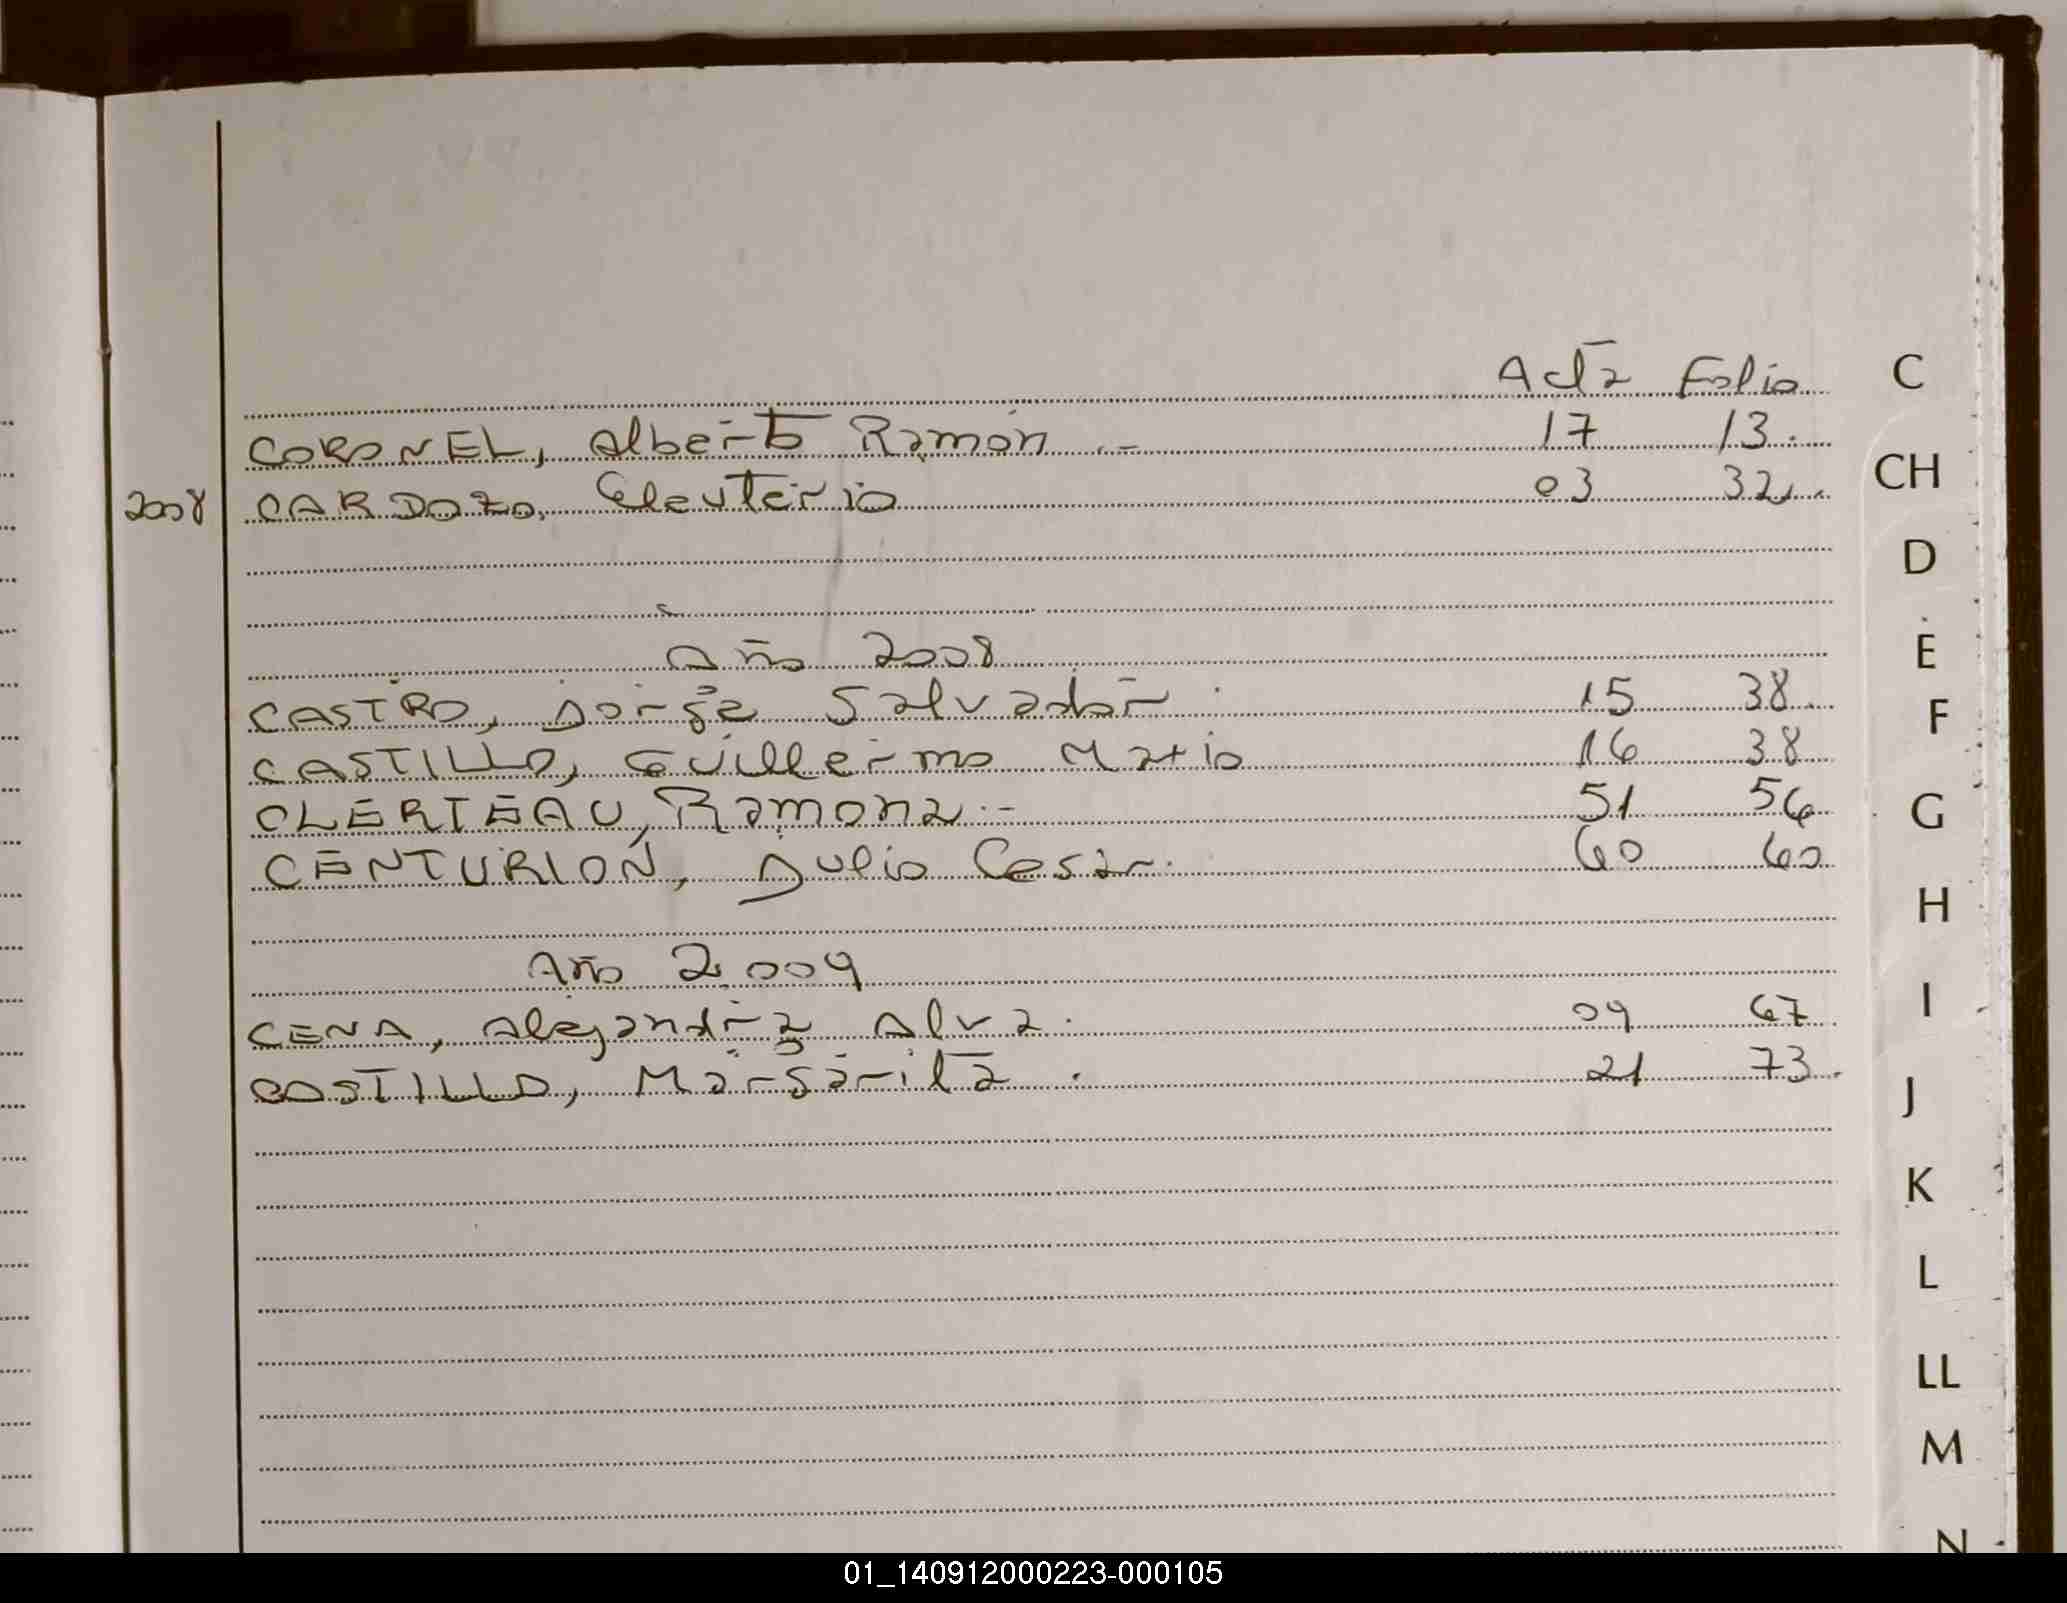 Acta Folio
CORONEL, Alberto Ramón .- 17 13.
2008 CARDOZO, Eleuterio 03 32.
Año 2008
CASTRO, Jorge Salvador . 15 38.
CASTILLO, Guillermo Mario 16 38
CLERTEAU, Ramona.- 51 56
CENTURION, Julio Cesar. 60 60
Año 2.009
CENA, Alejandra Alva . 09 67
CASTILLO, Margarita . 21 73.
C
CH
D
E
F
G
H
I
J
K
L
LL
M
N
01_140912000223-000105